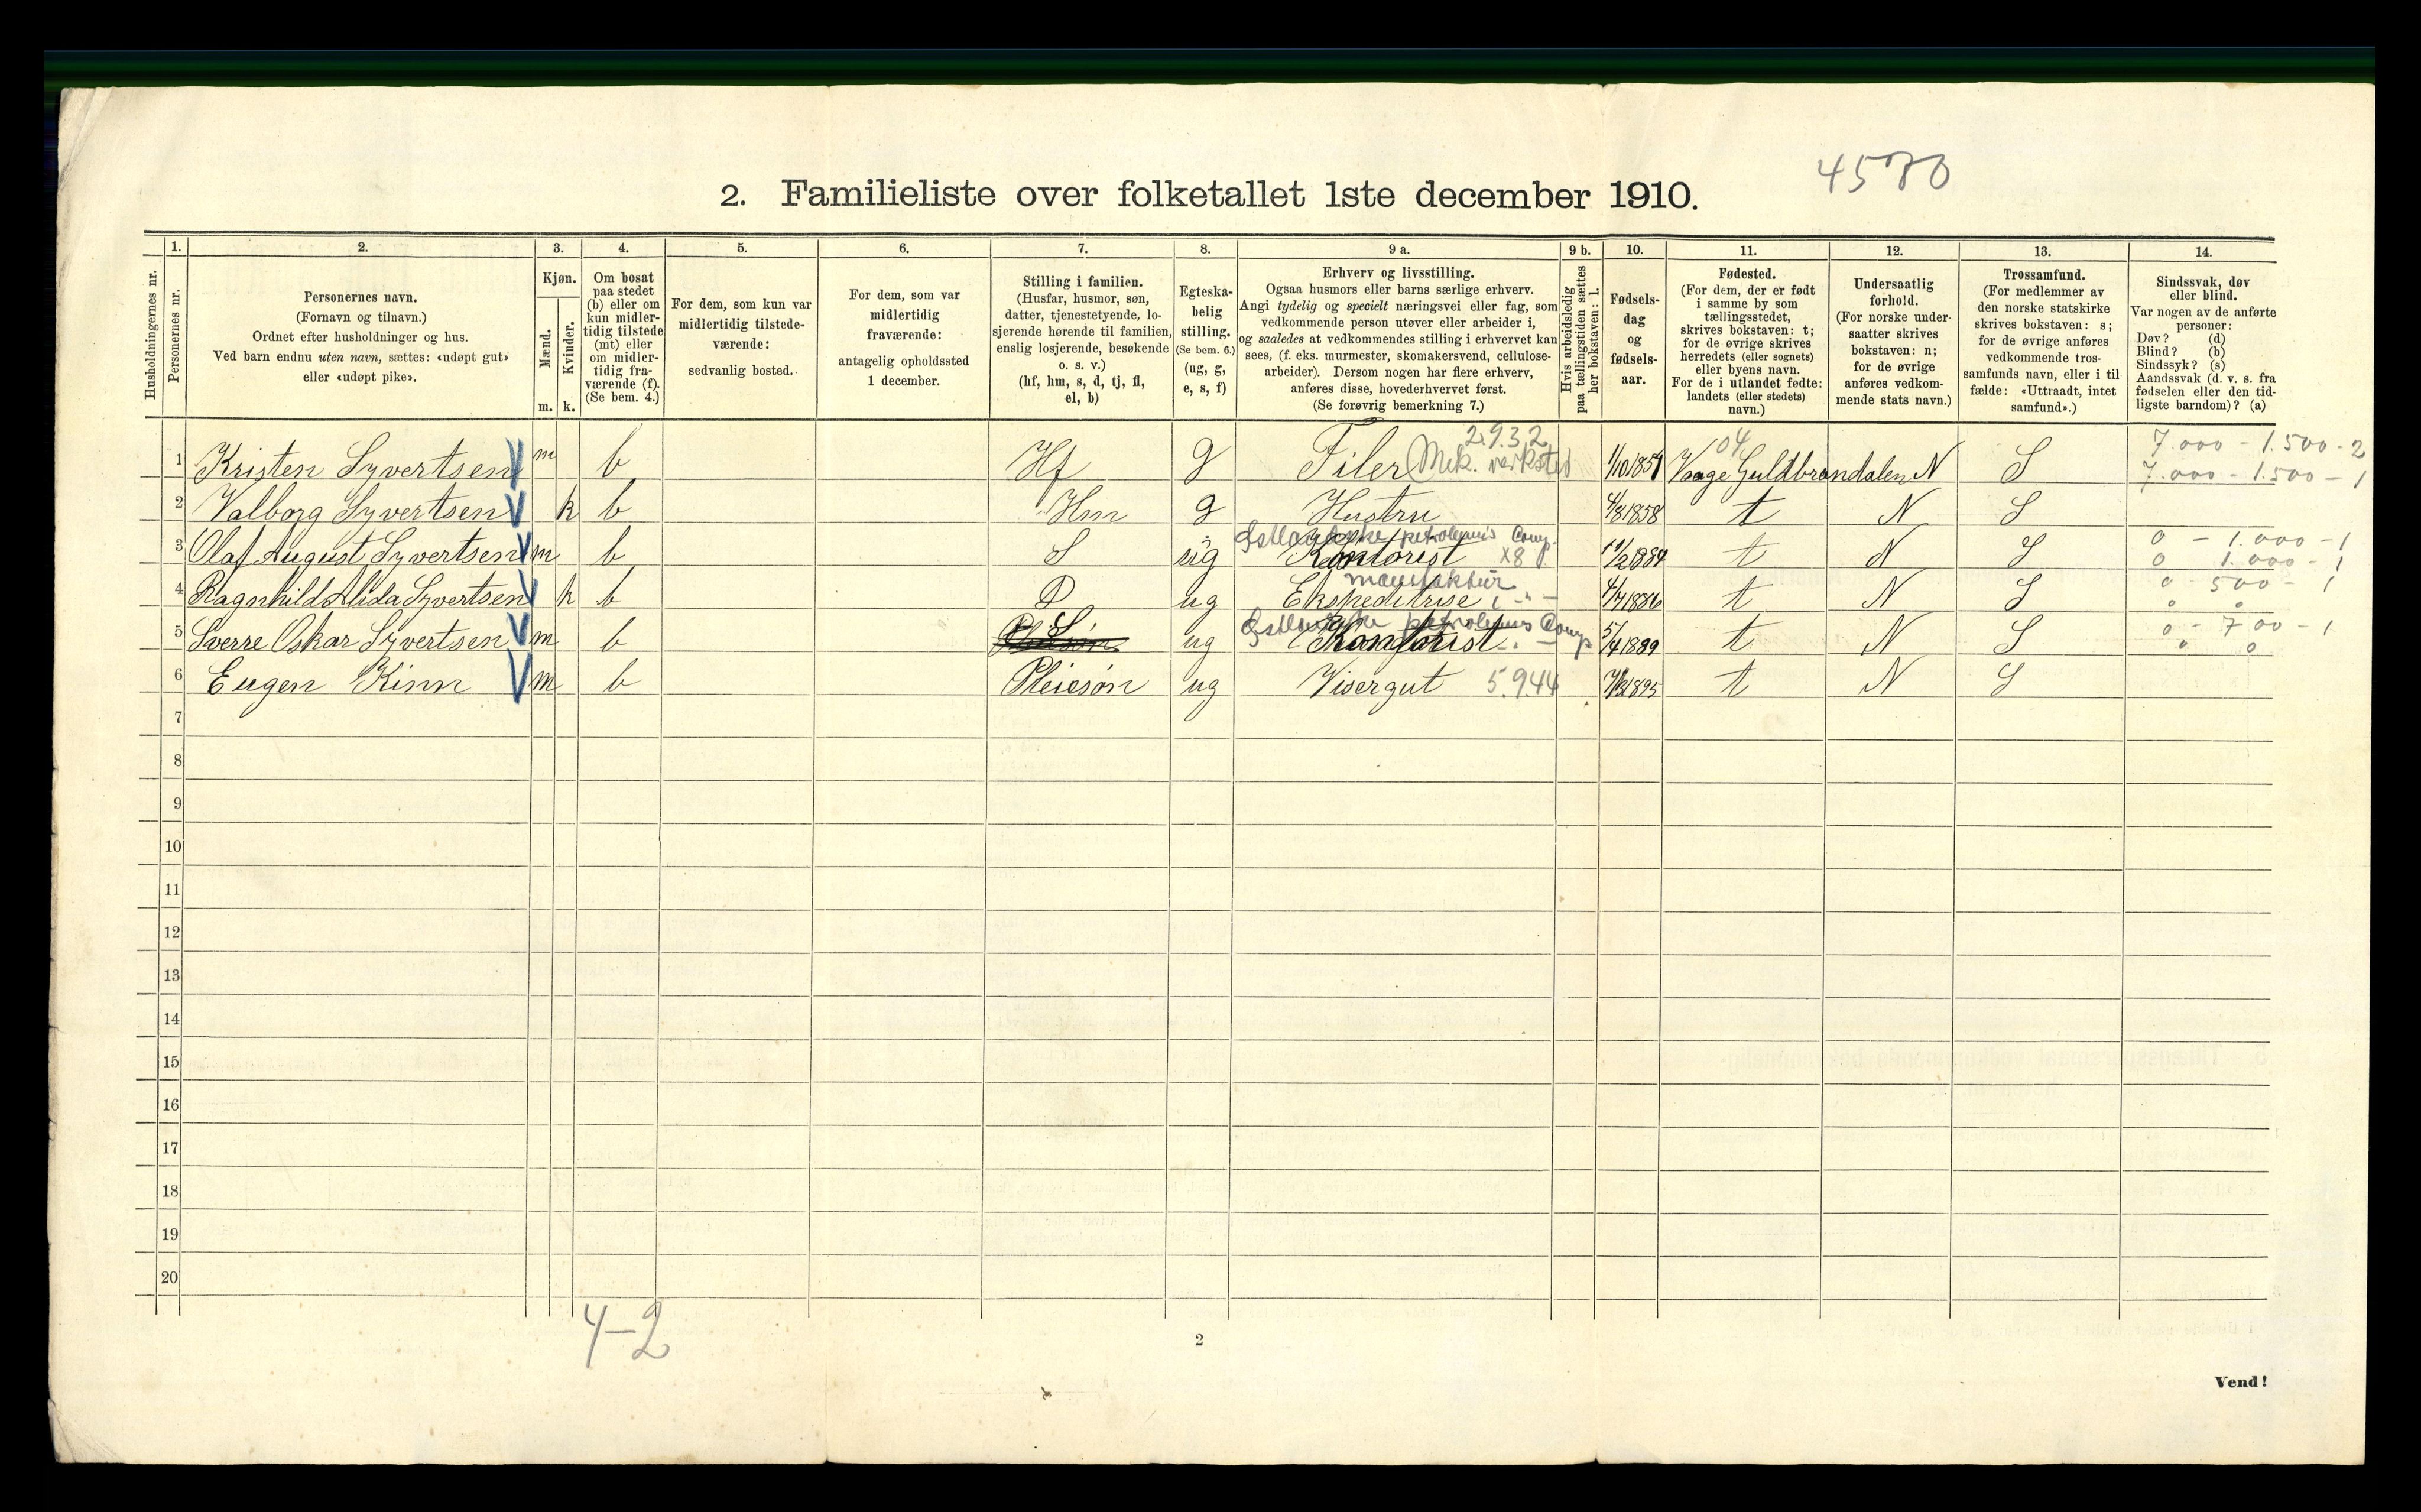 4570
2. Familieliste over folketallet 1ste december 1910.
Husholdningernes nr.
1.
Personernes nr.
2.
Personernes navn.
(Fornavn og tilnavn.)
Ordnet efter husholdninger og hus.
Ved barn endnu uten navn, sættes: «udøpt gut»
eller «udøpt pike».
3.
Kjøn.
Mænd.
Kvinder.
m. k.
4.
Om bosat
paa stedet
(b) eller om
kun midler-
tidig tilstede
(mt) eller
om midler-
tidig fra-
værende (f).
(Se bem. 4.)
5.
For dem, som kun var
midlertidig tilstede-
værende:
sedvanlig bosted.
6.
For dem, som var
midlertidig
fraværende:
antagelig opholdssted
1 december.
7.
Stilling i familien.
(Husfar, husmor, søn,
datter, tjenestetyende, lo-
sjerende hørende til familien,
enslig losjerende, besøkende
o. s. v.)
(hf, hm, s, d, tj, fl,
el, b)
8.
Egteska-
belig
stilling.
(Se bem. 6.)
(ug, g,
e, s, f)
9 a.
Erhverv og livsstilling.
Ogsaa husmors eller barns særlige erhverv.
Angi tydelig og specielt næringsvei eller fag, som
vedkommende person utøver eller arbeider i,
og saaledes at vedkommendes stilling i erhvervet kan
sees, (f. eks. murmester, skomakersvend, cellulose-
arbeider). Dersom nogen har flere erhverv,
anføres disse, hovederhvervet først.
(Se forøvrig bemerkning 7.)
9 b.
Hvis arbeidsledig
paa tællingstiden sættes
her bokstaven: l.
10.
Fødsels-
dag
og
fødsels-
aar.
11.
Fødested.
(For dem, der er født
i samme by som
tællingsstedet,
skrives bokstaven: t;
for de øvrige skrives
herredets (eller sognets)
eller byens navn.
For de i utlandet fødte:
landets (eller stedets)
navn.)
12.
Undersaatlig
forhold.
(For norske under-
saatter skrives
bokstaven: n;
for de øvrige
anføres vedkom-
mende stats navn.)
13.
Trossamfund.
(For medlemmer av
den norske statskirke
skrives bokstaven: s;
for de øvrige anføres
vedkommende tros-
samfunds navn, eller i til-
fælde: «Uttraadt, intet
samfund».)
14.
Sindssvak, døv
eller blind.
Var nogen av de anførte
personer:
Døv? (d)
Blind? (b)
Sindssyk? (s)
Aandssvak (d. v. s. fra
fødselen eller den tid-
ligste barndom)? (a)
2.9.32 104 7.000 - 1.500 - 2
1 Kristen Syvertsen m b Hf g Filer Mek. verksted 1/10 1859 Vaage Guldbrandalen N S 7.000 - 1.500 - 1
2 Valborg Syvertsen k b Hm g Hustru 4/8 1858 t N S
Østlandske petroleums Comp. 0 - 1.000 - 1
3 Olaf August Syvertsen m b S ug Kontorist x8 11/2 1884 t N S 0 1.000 - 1
manufaktur 0 500 - 1
4 Ragnhild Alida Syvertsen k b D ug Ekspeditrise i -"- 4/7 1886 t N S 0 0
Østlandske petroleums Comp. 0 - 700 - 1
5 Sverre Oskar Syvertsen m b S ug Kontorist 5/4 1889 t N S 0 0
6 Eugen Kinn m b Pleiesøn ug Visergut 5.944 7/3 1895 t N S
7
8
9
10
11
12
13
14
15
16
17
18
19
20
4-2
2
Vend!